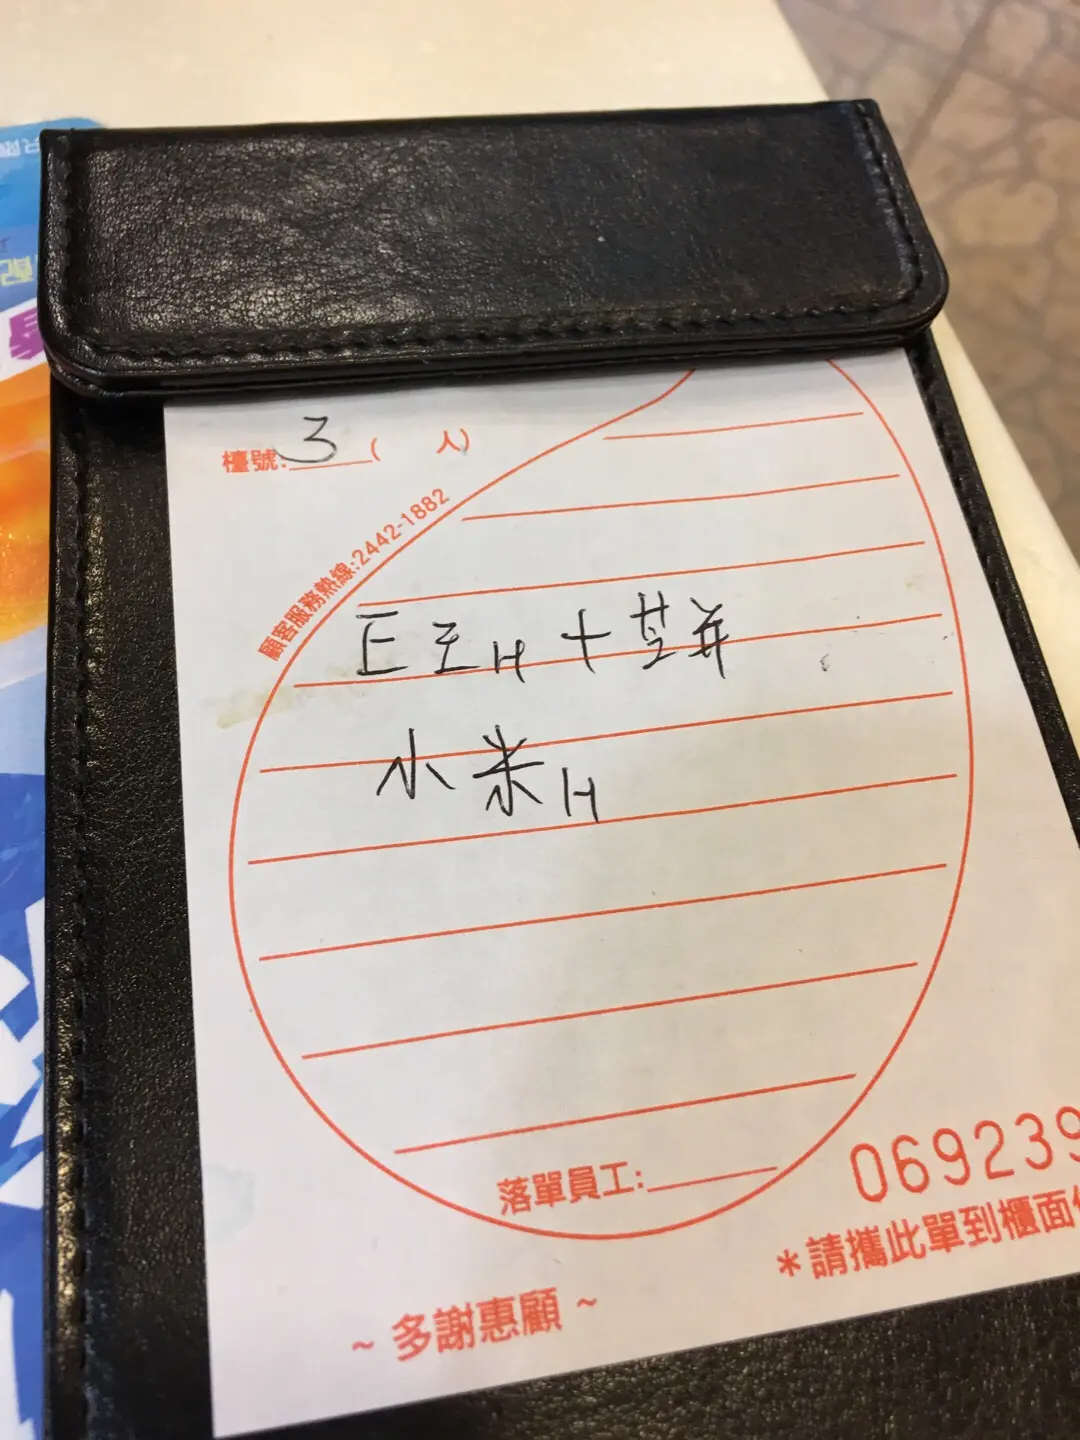 檯號:3(　人)
顧客服務熱線:2442-1882
小米H
落單員工:
069239
*請攜此單到櫃面
~ 多謝惠顧 ~